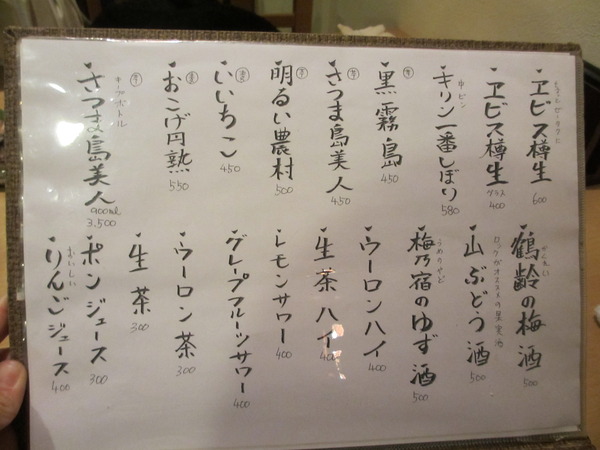 ヱビス樽生 600
ヱビス樽生 グラス 400
キリン一番しぼり 中ビン 580
黒霧島 芋 450
さつま島美人 芋 450
明るい農村 芋 500
いいちこ 麦 450
おこげ円熟 550
さつま島美人 芋 キープボトル 900ml 3,500
鶴齢の梅酒 かくれい 500
山ぶどう酒 ロックがオススメの果実酒 500
梅乃宿のゆず酒 うめのやど 500
ウーロンハイ 400
生茶ハイ 400
レモンサワー 400
グレープフルーツサワー 400
ウーロン茶 300
生茶 300
ポンジュース 300
りんごジュース おいしい 400